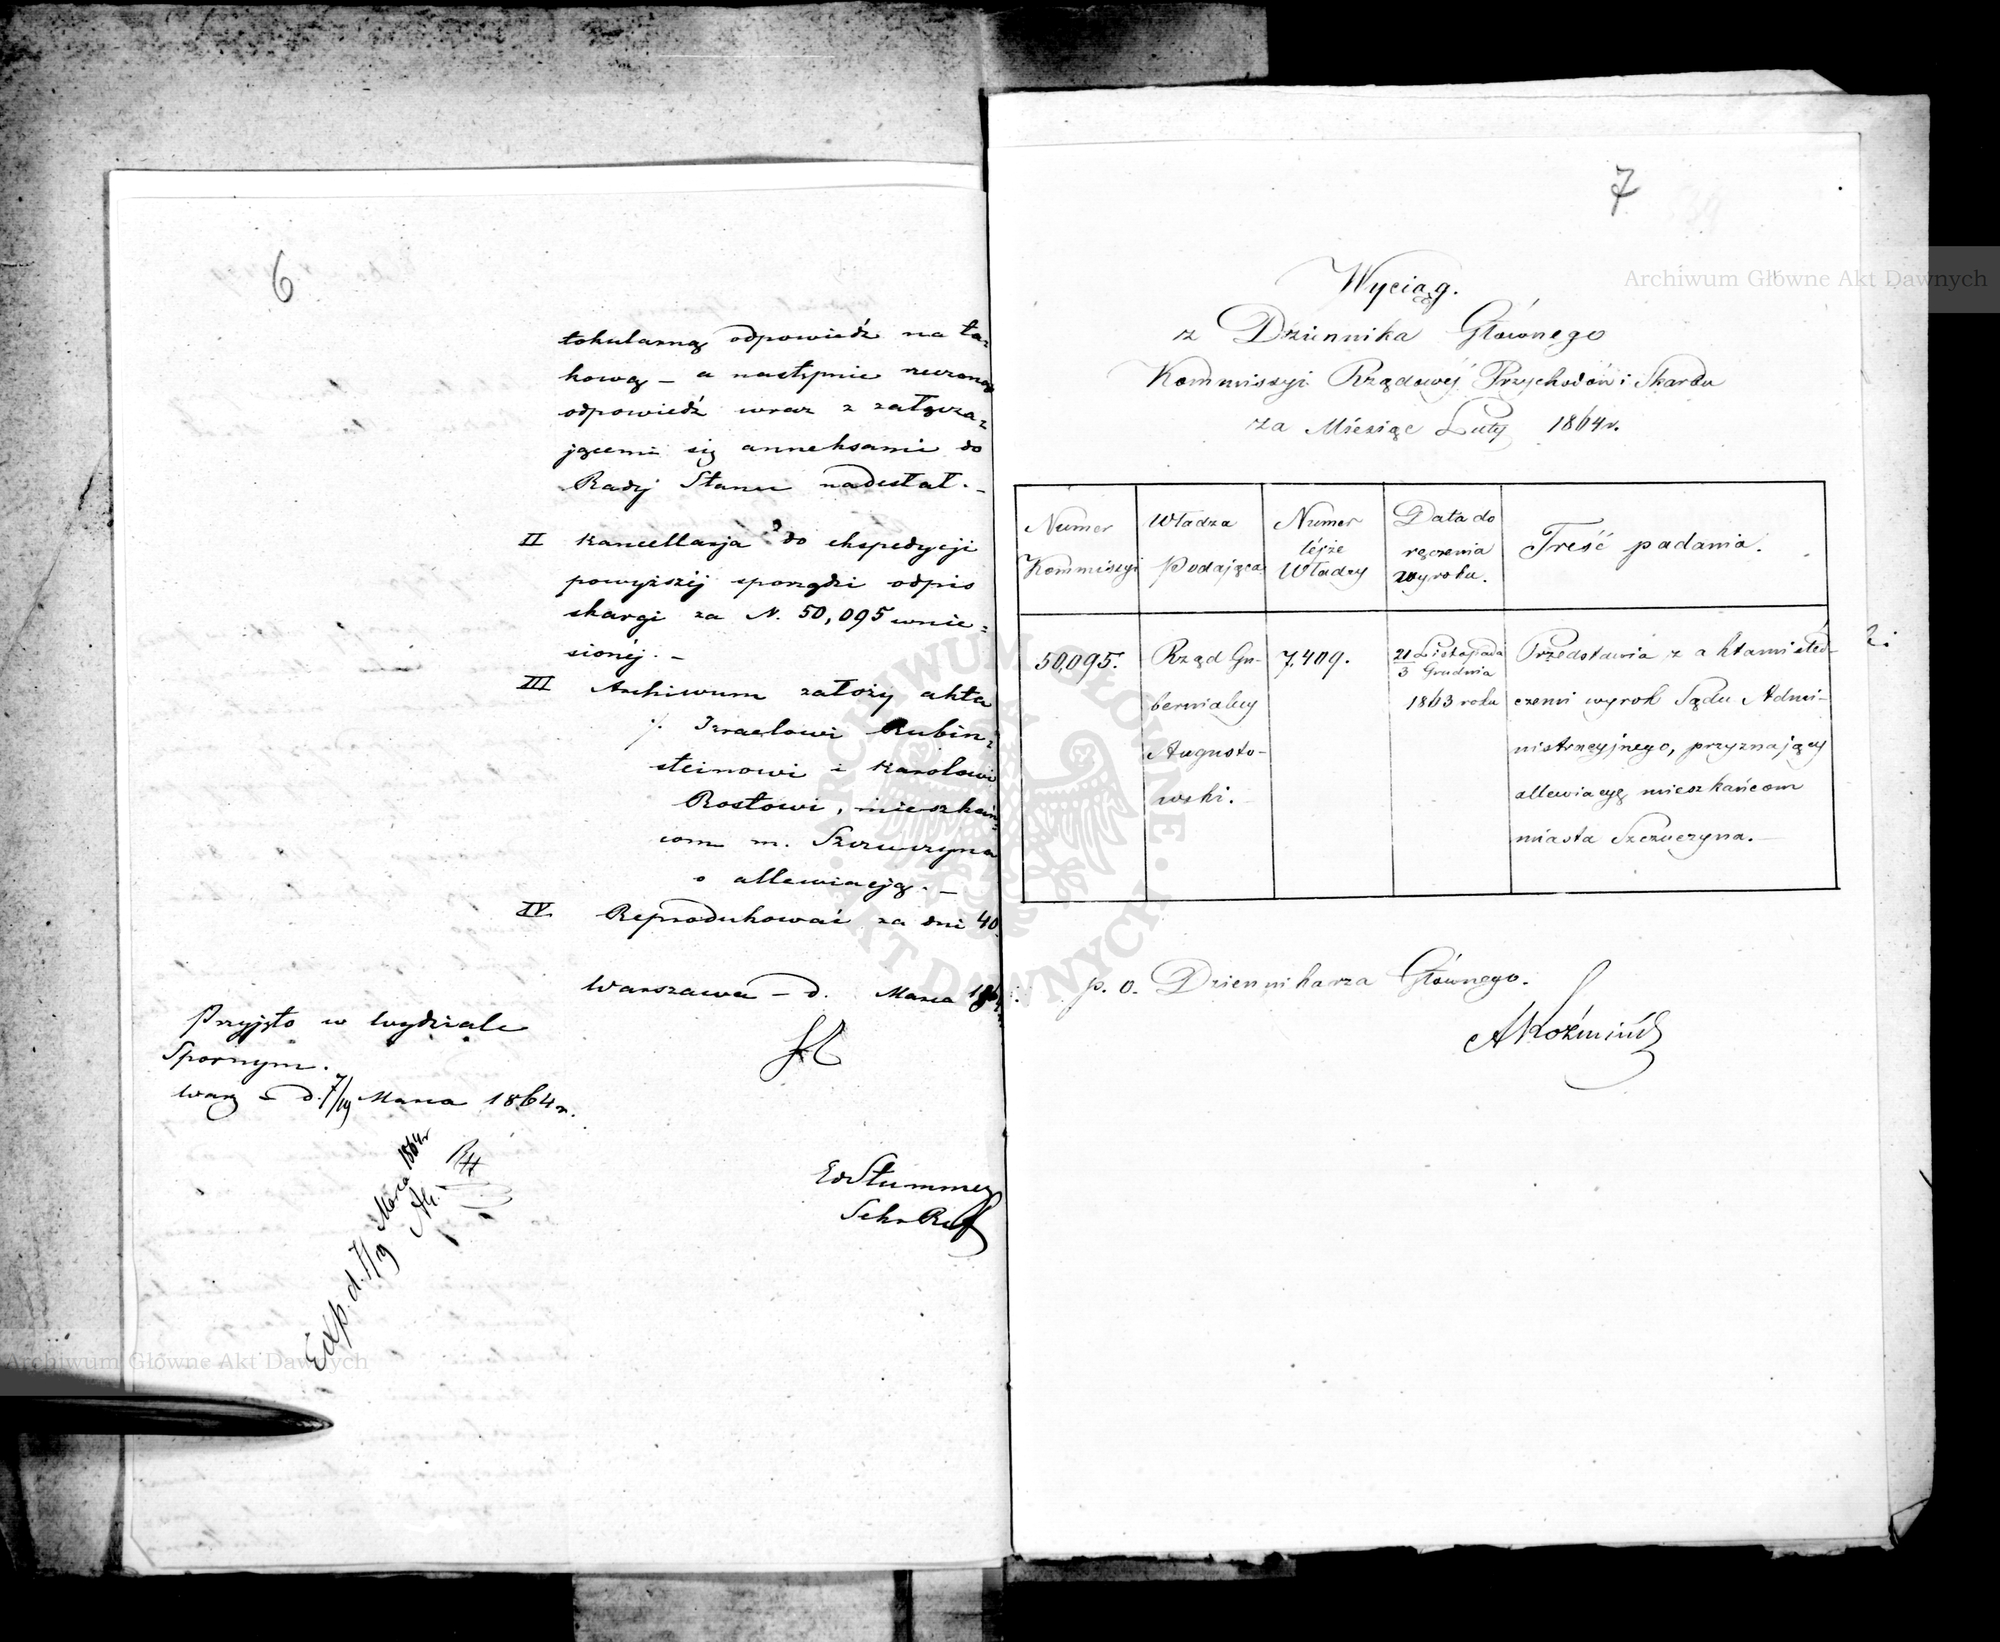 6
tokularną odpowiedź na ta-
kową – a następnie rzeczoną
odpowiedź wraz z załącza-
jącemi się anneksami do
Rady Stanu nadesłał. –
II Kancellarja do ekspedycji
powyższéj sporządzi odpis
skargi za N. 50,095 wnie-
sionéj. –
III Archiwum założy akta
Izraelowi Rubin-
steinowi i Karolowi
Rostowi, mieszkań-
com m. Szczuczyna
o allewiacją. –
IV. Reprodukować za dni 40.
Warszawa – d. Marca 1864
Przyjęto w Wydziale
Spornym.
Warsz d. 7/19 Marca 1864 r.
Exp. d. 7/19 Marca 1864r
EdStummer
Sekr
7
Wyciąg.
z Dziennika Głównego
Kommissyi Rządowéj Przychodów i Skarbu
za Miesiąc Luty 1864 r.
Numer Kommissyi
Władza Podająca
Numer téjże Władzy
Data do ręczenia wyroku.
Treść podania.
50,095.
Rząd Gu-
bernialny
Augusto-
wski.
7,409.
21 Listopada
3 Grudnia
1863 roku
Przedstawia z aktami śled-
czemi wyrok Sądu Admi-
nistracyjnego, przyznający
allewiacyę mieszkańcom
miasta Szczuczyna. –
p. o. Dziennikarza Głównego.
AKoźmiński
Archiwum Główne Akt Dawnych
Archiwum Główne Akt Dawnych
ARCHIWUM GŁÓWNE · AKT DAWNYCH ·